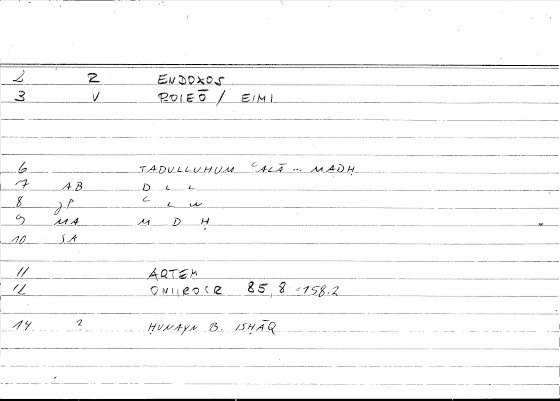 2 R ENDOXOS
3 V POIEŌ / EIMI
6 TADULLUHUM ʿALĀ ... MADḤ
7 AB D L L
8 JP ʿ L W
9 MA M D Ḥ
10 SA
11 ARTEM
12 ONIROCR 85,8 = 158.2
14 2 ḤUNAYN B. ISḤĀQ